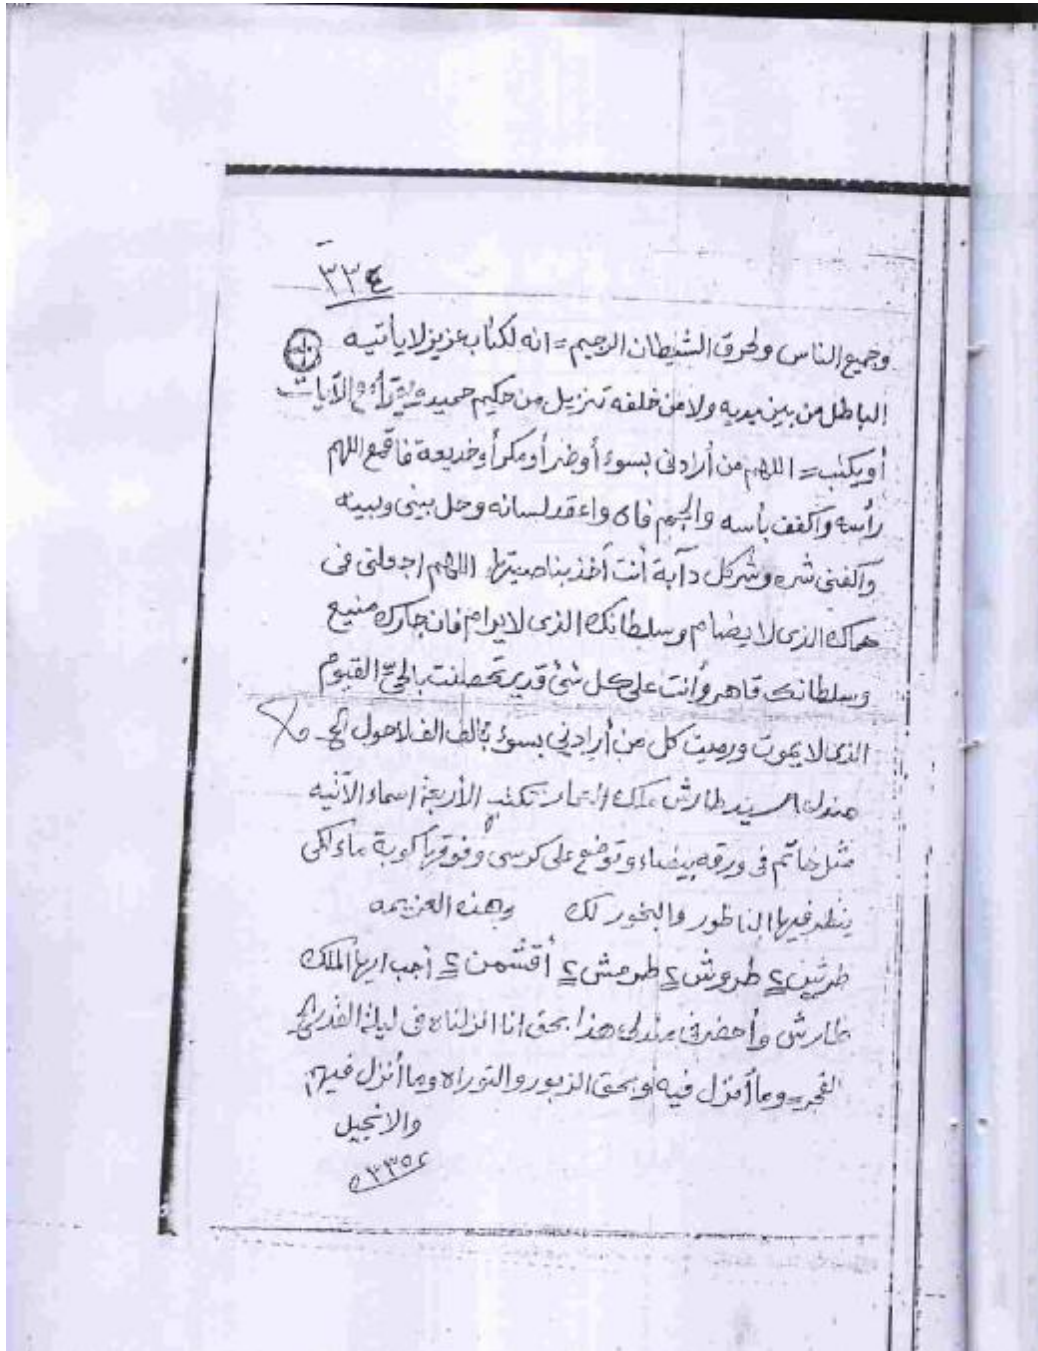 ٣٣٤
وجميع الناس ولحرق الشيطان الرجيم = انه لكتاب عزيز لا يأتيه
الباطل من بين يديه ولا من خلفه تنزيل من حكيم حميد الآيات
أو يكتب = اللهم من أرادنى بسوء أو ضر أو مكر أو خديعة فاقمع اللهم
رأسه واكفف بأسه والجم فاه واعقد لسانه وحل بينى وبينه
واكفنى شره وشر كل دآبة أنت أخذ بناصيتها اللهم اجعلنى فى
حماك الذى لا يضام وسلطانك الذى لا يرام فان جارك منيع
وسلطانك قاهر وأنت على كل شئ قدير تحصلنت بالحىّ القيوم
الذى لا يموت ورميت كل من أرادنى بسوء بألف ألف لاحول الخ
مندل السيد طارش ملك تكتب الأربعة اسماء الآتيه
مثل خاتم فى ورقه بيضاء وتوضع على كرسى وفوقها كوبة ماء لكى
ينظر فيها الناظور والبخور لك وهذه العزيمه
طرشن ٢ طروش ٢ طرمش ٢ أقشمن ٢ أجب ايها الملك
طارش وأحضر فى مندلى هذا بحق انا انزلناه فى ليلة القدر الخ
الفجر = وما أنزل فيه وبحق الزبور والتوراه وما أنزل فيهم
والانجيل
٣٣٥